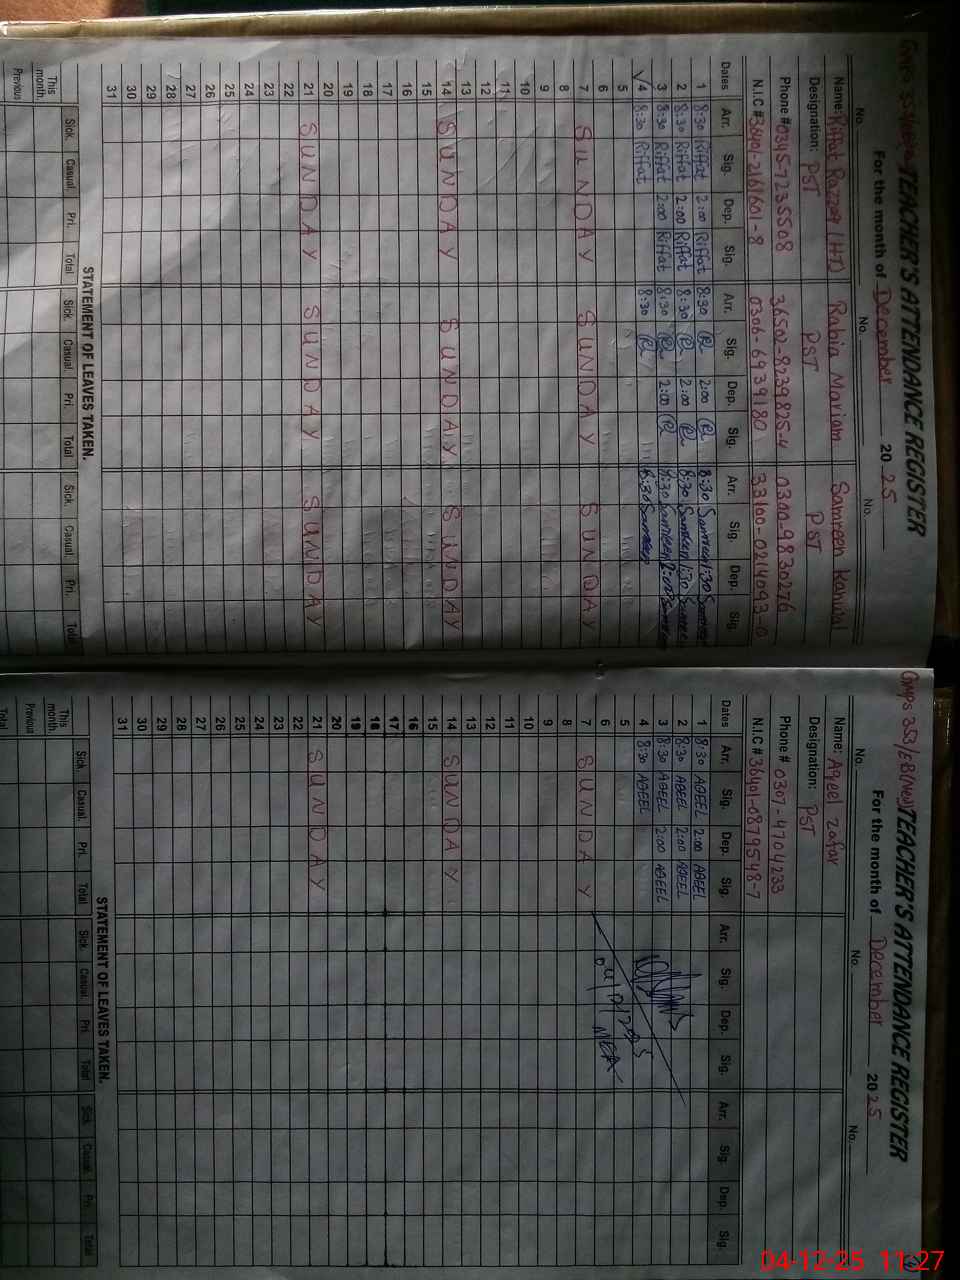 TEACHER'S ATTENDANCE REGISTER
For the month of December 2025
No. No. No.
Name: Riffat Razzaq (HT) Rabia Mariam Samreen Kanwal
Designation: PST PST PST
Phone # 0345-7235508 36502-8239825-4 0300-9830276
N.I.C # 36401-2161601-8 0306-6939180 33100-0214093-0
Dates Arr. Sig. Dep. Sig. Arr. Sig. Dep. Sig. Arr. Sig. Dep. Sig.
1 8:30 Riffat 2:00 Riffat 8:30 R 2:00 R 8:30 Samreen 1:30
2 8:30 Riffat 2:00 Riffat 8:30 R 2:00 R 8:30 Samreen 1:30
3 8:30 Riffat 2:00 Riffat 8:30 R 2:00 R 8:30 Samreen 2:00
4 8:30 Riffat 8:30 R 8:30 Samreen
5
6
7 SUNDAY SUNDAY SUNDAY
8
9
10
11
12
13
14 SUNDAY SUNDAY SUNDAY
15
16
17
18
19
20
21 SUNDAY SUNDAY SUNDAY
22
23
24
25
26
27
28
29
30
31
STATEMENT OF LEAVES TAKEN.
Sick. Casual. Pri. Total Sick. Casual. Pri. Total Sick. Casual. Pri. Total
This month.
Previous
GMPS 353/EB(New) TEACHER'S ATTENDANCE REGISTER
For the month of December 2025
No. No. No.
Name: Aqeel Zafar
Designation: PST
Phone # 0307-4704233
N.I.C # 36401-0879548-7
Dates Arr. Sig. Dep. Sig. Arr. Sig. Dep. Sig. Arr. Sig. Dep. Sig.
1 8:30 AQEEL 2:00 AQEEL
2 8:30 AQEEL 2:00 AQEEL
3 8:30 AQEEL 2:00 AQEEL
4 8:30 AQEEL
5
04/12/2025
6
MEA
7 SUNDAY
8
9
10
11
12
13
14 SUNDAY
15
16
17
18
19
20
21 SUNDAY
22
23
24
25
26
27
28
29
30
31
STATEMENT OF LEAVES TAKEN.
Sick. Casual. Pri. Total Sick. Casual. Pri. Total Sick. Casual. Pri. Total
This month.
Previous
Total
04-12-25 11:27